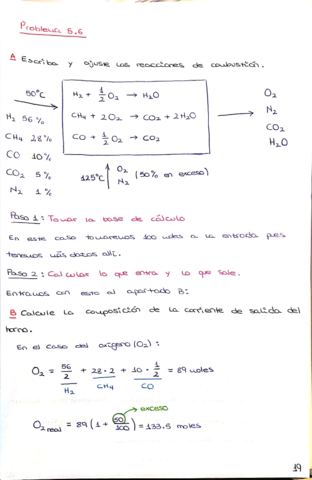 Problema 5.6
A Escriba y ajuste las reacciones de combustión.
50°C
H₂ 56%
CH₄ 28%
CO 10%
CO₂ 5%
N₂ 1%
H₂ + 1/2 O₂ → H₂O
CH₄ + 2O₂ → CO₂ + 2H₂O
CO + 1/2 O₂ → CO₂
O₂
N₂
CO₂
H₂O
125°C O₂ N₂ (50% en exceso)
Paso 1: Tomar la base de cálculo
En este caso tomaremos 100 moles a la entrada pues
tenemos más datos allí.
Paso 2: Calcular lo que entra y lo que sale.
Entramos con esto al apartado B:
B Calcule la composición de la corriente de salida del
horno.
En el caso del oxígeno (O₂):
O₂ = 56/2 + 28·2 + 10·1/2 = 89 moles
H₂ CH₄ CO
exceso
O₂ real = 89 (1 + 50/100) = 133.5 moles
19